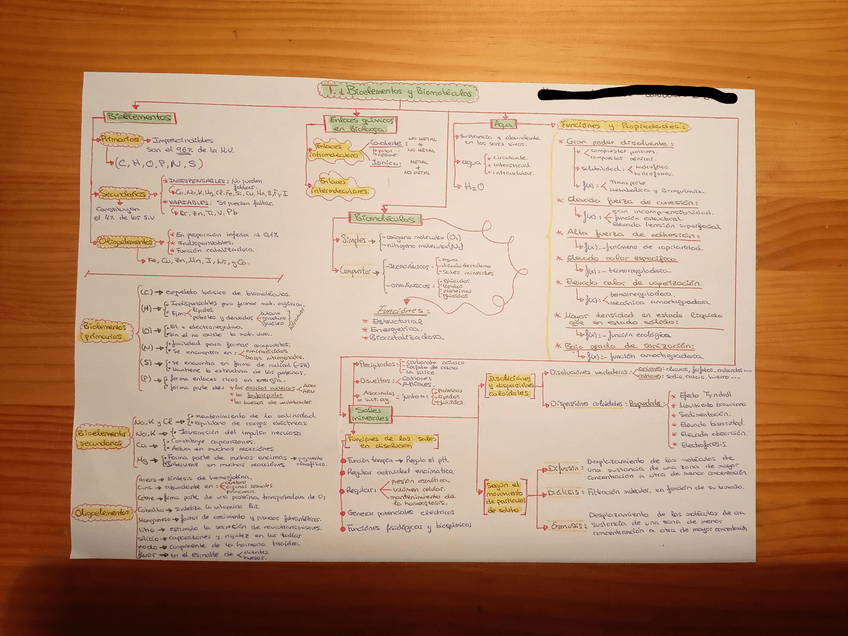 1. Bioelementos y Biomoléculas
Bioelementos
Primarios → Imprescindibles
son el 96% de la M.V.
(C, H, O, P, N, S)
Secundarios
INDISPENSABLES: No pueden
faltar.
VARIABLES: Se pueden faltar.
Br, Zn, Ti, V, Pb
Constituyen
el 4% de los S.V.
Oligoelementos
En proporción inferior al 0,1%
Indispensables.
Función catalizadora.
Fe, Cu, Zn, Mn, I, Ni, y Co.
Enlaces químicos
en Biología
Enlaces
intramoleculares
Covalente:
polar
apolar
NO METAL
+
NO METAL
Iónico:
METAL
+
NO METAL
Enlaces
intermoleculares
Agua
Sustancia + abundante
en los seres vivos.
agua
circulante.
intersticial.
intracelular.
H₂O
Funciones y Propiedades:
* Gran poder disolvente:
compuestos polares
compuestos iónicos.
solubilidad
hidrófilos
hidrófobos.
f(x)
Transporte.
metabólica y Bioquímica.
* Elevada fuerza de cohesión:
f(x)
gran incompresibilidad.
función estructural.
elevada tensión superficial
* Alta fuerza de adhesión:
f(x) - fenómeno de capilaridad.
* Elevado calor específico
f(x) - termorreguladora.
* Elevado calor de vaporización:
f(x)
termorreguladora.
mecánica amortiguadora.
* Mayor densidad en estado líquido
que en estado sólido:
f(x) - función ecológica
* Bajo grado de ionización:
f(x) - función amortiguadora.
Biomoléculas
Simples
- oxígeno molecular (O₂)
- nitrógeno molecular (N₂)
Compuestas
- INORGÁNICAS
agua
dióxido de carbono
sales minerales
- ORGÁNICAS:
glúcidos
lípidos
proteínas
Funciones:
* Estructural
* Energética.
* Biocatalizadora
Bioelementos
primarios
(C) → esqueleto básico de biomoléculas.
(H)
Indispensables para formar mat. orgánica.
lípidos.
petróleo y derivados
butano
gasolina
(O)
El + electronegativo.
Sin él no existe la mat. viva.
(N)
facilidad para formar compuestos.
Se encuentran en:
aminoácidos
bases nitrogenadas.
(S)
se encuentra en forma de radical (-SH)
Mantiene la estructura de las proteínas.
(P)
forma enlaces ricos en energía.
forma parte de:
los ácidos nucleicos
ADN
ARN
los fosfolípidos
los huesos de vertebrados
Bioelementos
secundarios
Na, K y Cl
mantenimiento de la salinidad.
equilibrio de cargas eléctricas
Na, K → Transmisión del impulso nervioso
Ca
Constituye caparazones.
Actúa en muchas reacciones.
Mg
Forma parte de muchas enzimas
Interviene en muchas reacciones.
pigmento
clorofílico.
Oligoelementos
Hierro → síntesis de hemoglobina.
Cinc → abundante en:
cerebro
órganos sexuales
páncreas
Cobre → forma parte de una proteína transportadora de O₂
Cobalto → sintetiza la vitamina B12.
Manganeso → factor de crecimiento y procesos fotosintéticos.
Litio → estimula la secreción de neurotransmisores.
Silicio → caparazones y rigidez en los tallos
Yodo → componente de la hormona tiroidea.
flúor → en el esmalte de
dientes.
huesos.
Sales
minerales
Precipitadas
carbonato cálcico
fosfato de calcio
la sílice
Disueltas
Cationes
Aniones
Asociadas
a sust. org.
junto a:
proteínas
lípidos
glúcidos.
Funciones de las sales
en disolución
Función tampón → Regula el pH.
Regular actividad enzimática
Regular:
presión osmótica.
volumen celular.
mantenimiento de
la homeostasis.
Generar potenciales eléctricos
Funciones fisiológicas y bioquímicas
Disoluciones
y dispersiones
coloidales
Disoluciones verdaderas:
aniones: cloruros, fosfatos, carbonatos...
cationes: sodio, calcio, hierro...
Dispersiones coloidales: Propiedades
* Efecto Tyndall
* Movimiento browniano
* Sedimentación.
* Elevada viscosidad.
* Elevada adsorción.
* Electroforesis
Según el
movimiento
de partículas
de soluto
Difusión:
Desplazamiento de las moléculas de
una sustancia de una zona de mayor
concentración a otra de menor concentración
DIÁLISIS: Filtración molecular en función de su tamaño.
ÓSMOSIS:
Desplazamiento de las moléculas de una
sustancia de una zona de menor
concentración a otra de mayor concentración